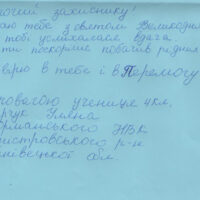 рогий захиснику!
аю тебе з святом Великодня
тобі усміхалася вдача.
ти поскоріше побачив рідних
вірю в тебе і в Перемогу
повагою учениця 4 кл.
рчук Уляна
рманського НВК
ністровського р-н
нівецької обл.